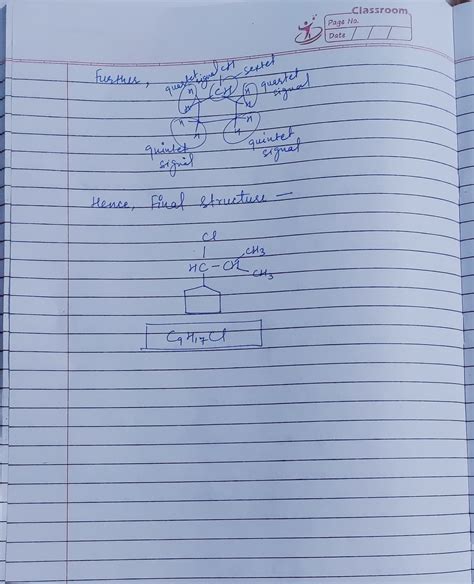 Classroom
Page No.
Date / / /
Further,
quartet signal CH sextet
H CH H quartet
H H signal
H H
quintet quintet
signal signal
Hence, Final structure —
Cl
CH3
HC - CH
CH3
C9H17Cl